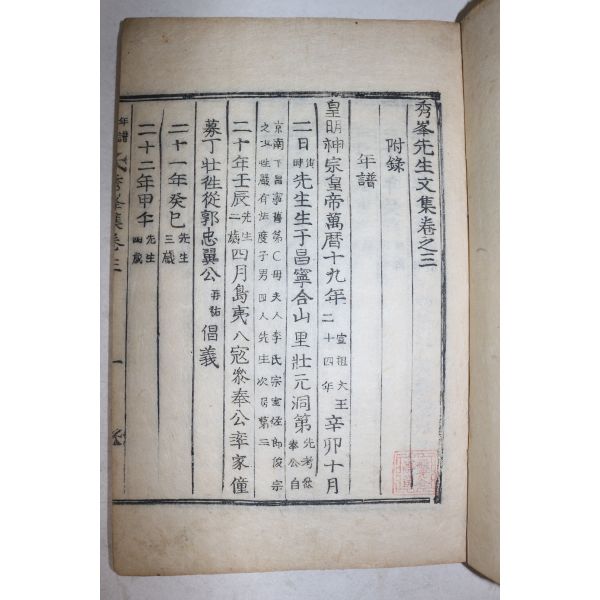 秀峯先生文集卷之三
附錄
年譜
皇明神宗皇帝萬曆十九年宣祖大王二十四年辛卯十月
二日時先生生于昌寧合山里壯元洞第先考參奉公自
京南下昌寧舊第〇母夫人李氏宗室佐郎俊宗
之女性嚴有法度子男四人先生次居第三
二十年壬辰先生二歲四月島夷入寇參奉公率家僮
募丁壯往從郭忠翼公再祐倡義
二十一年癸巳先生三歲
二十二年甲午先生四歲
年譜 秀峯集卷三 一